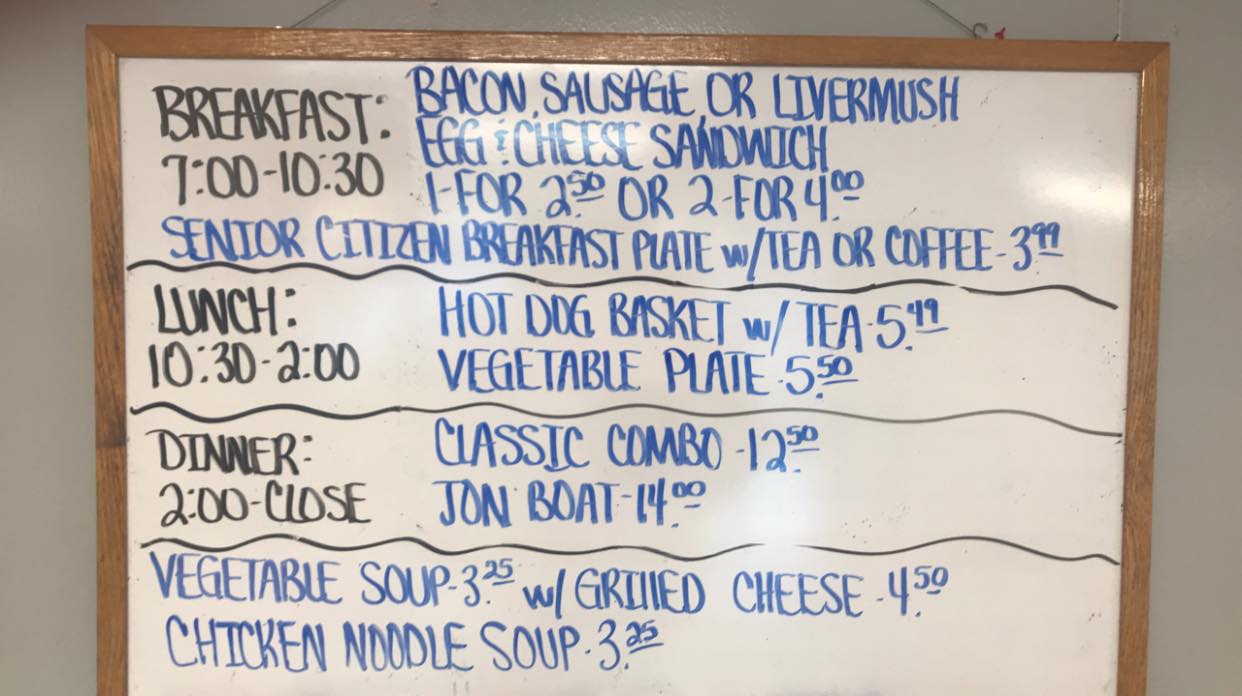 BREAKFAST: BACON, SAUSAGE, OR LIVERMUSH
EGG & CHEESE SANDWICH
7:00-10:30 1-FOR 2.50 OR 2-FOR 4.00
SENIOR CITIZEN BREAKFAST PLATE w/TEA OR COFFEE-3.99
LUNCH: HOT DOG BASKET w/ TEA-5.49
10:30-2:00 VEGETABLE PLATE-5.50
DINNER: CLASSIC COMBO-12.50
2:00-CLOSE JON BOAT-14.00
VEGETABLE SOUP-3.25 w/ GRILLED CHEESE-4.50
CHICKEN NOODLE SOUP-3.25